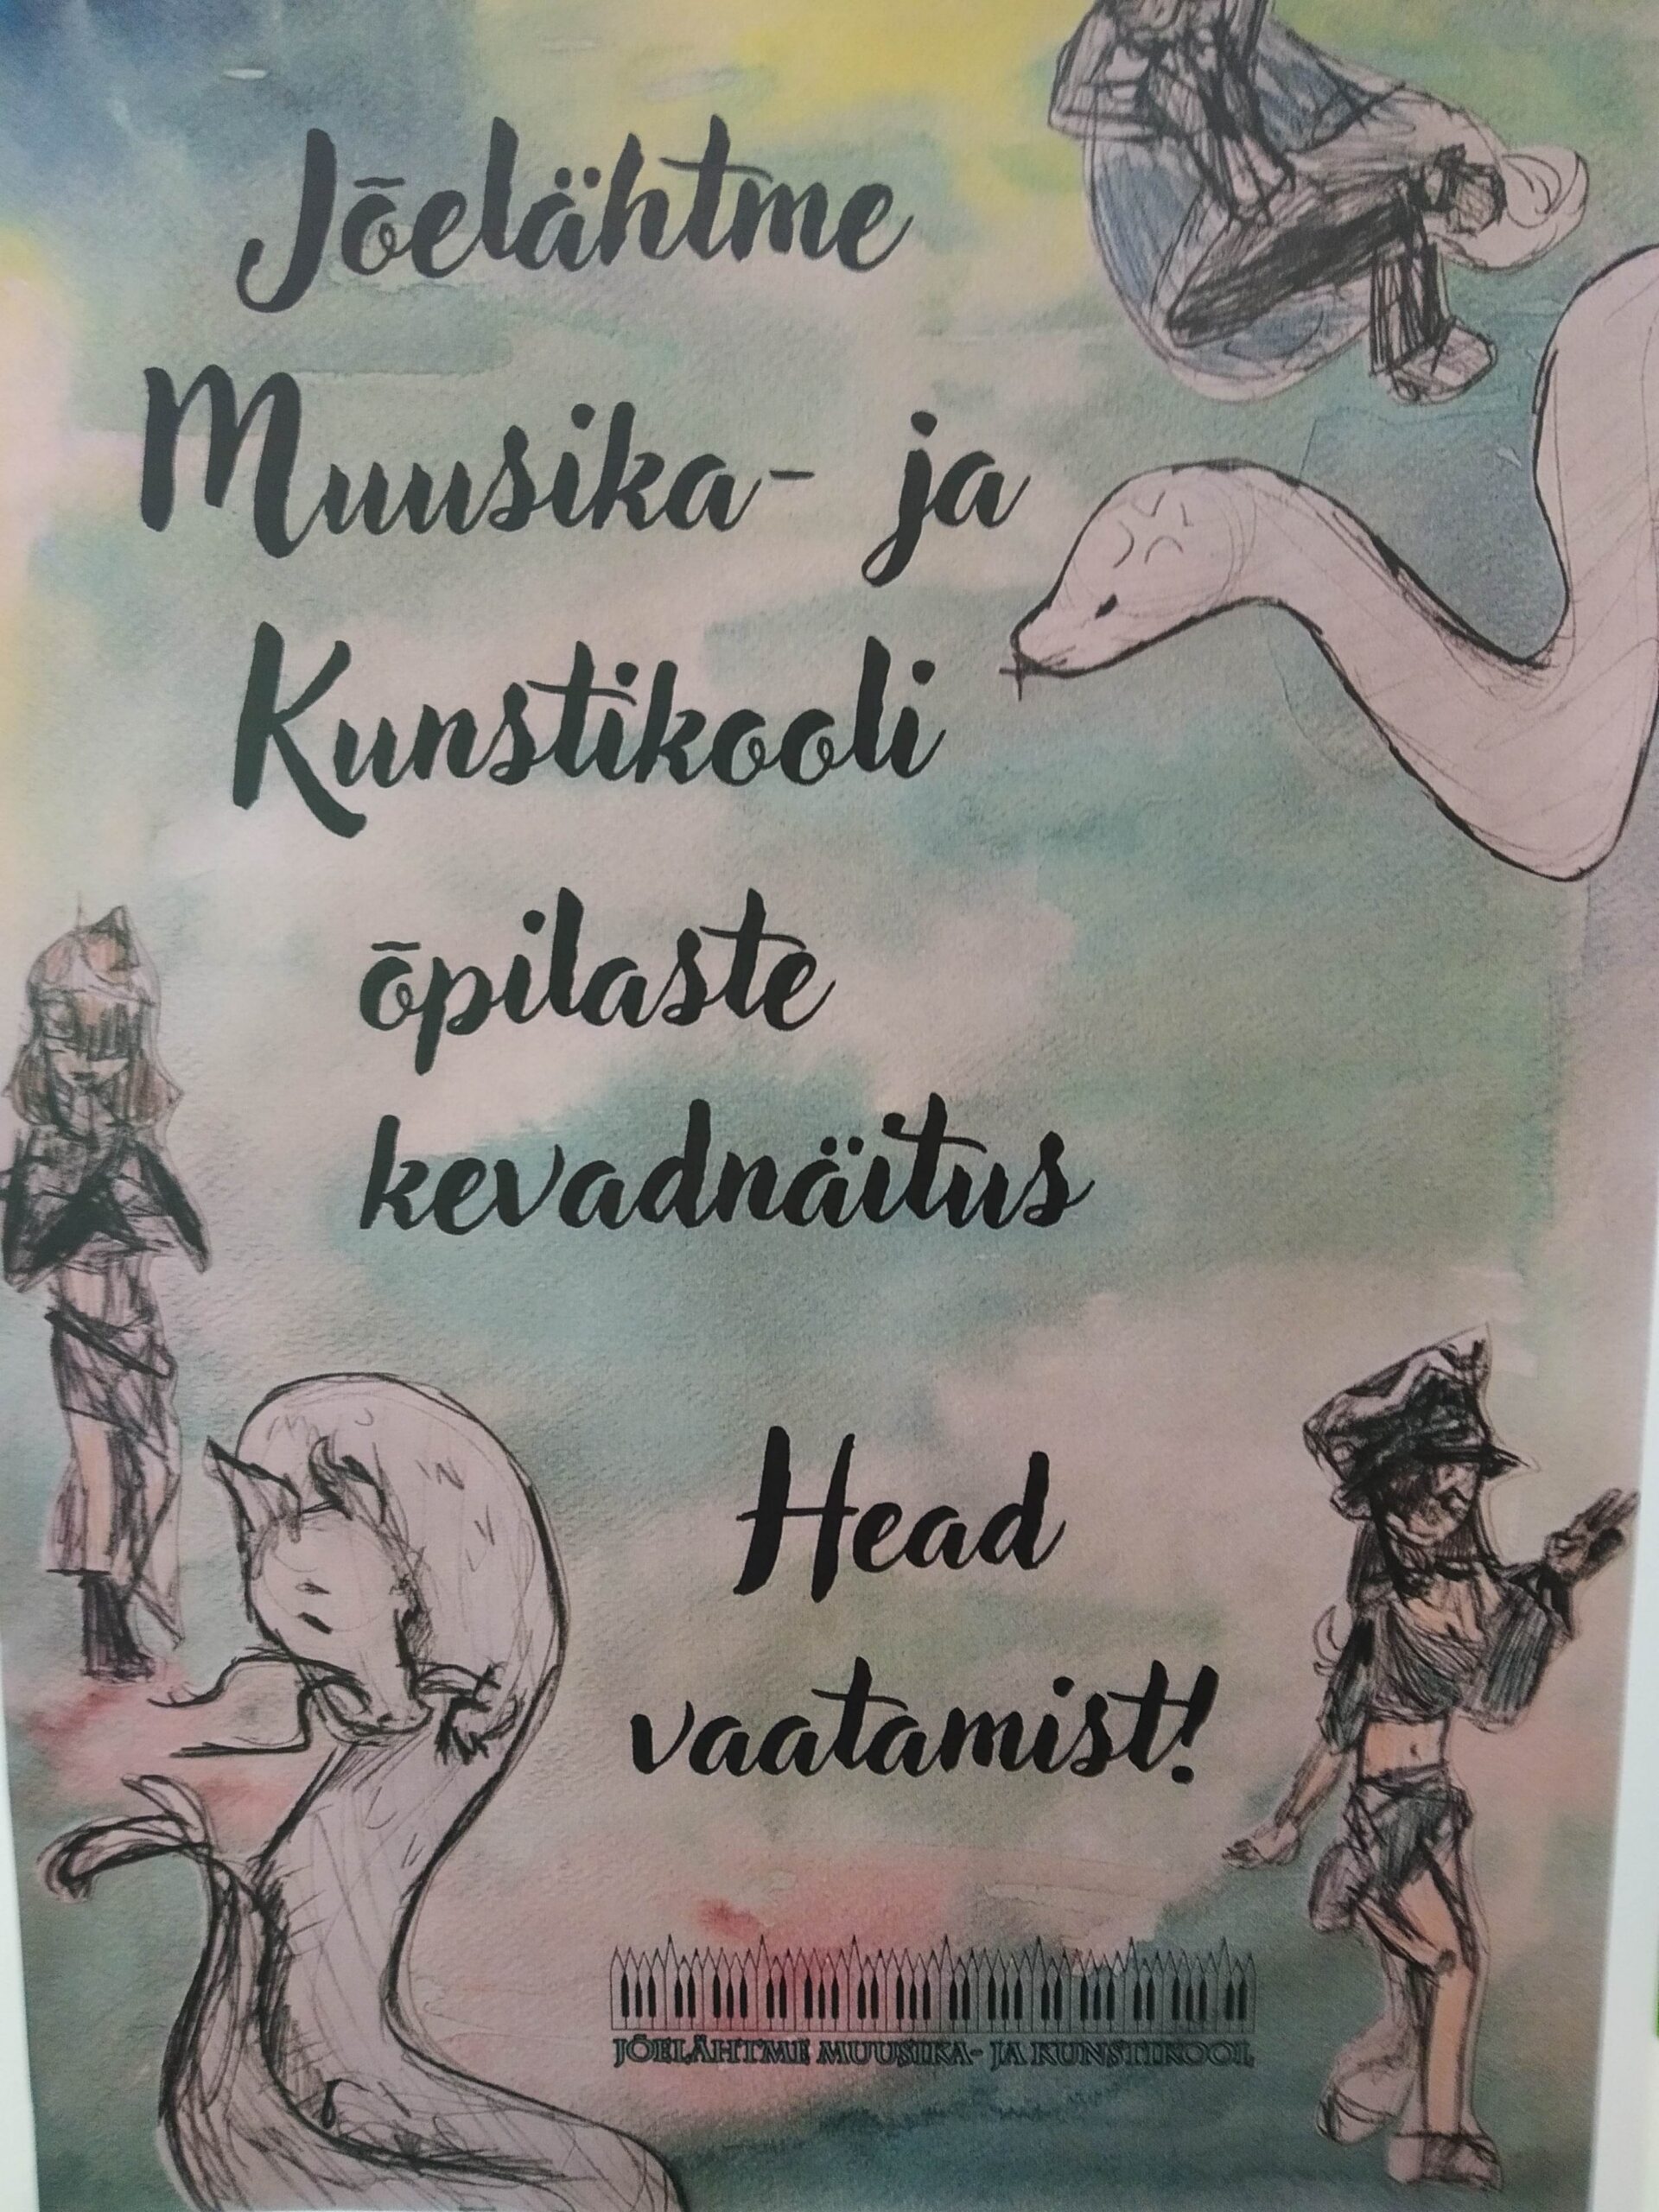 Jõelähtme
Muusika- ja
Kunstikooli
õpilaste
kevadnäitus
Head
vaatamist!
JÕELÄHTME MUUSIKA- JA KUNSTIKOOL